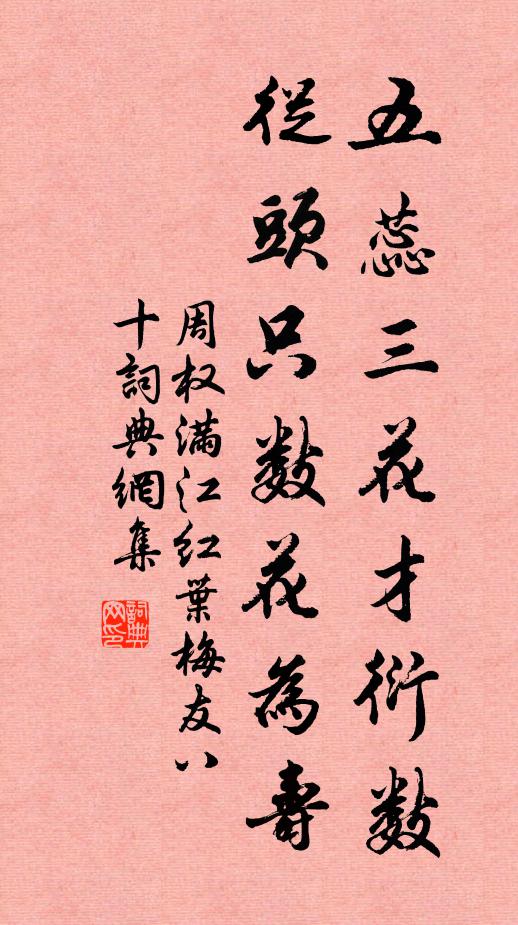 五蕊三花才衍数
從頭只数花為壽
周权满江红葉梅友八
十詞典網集
詞典网印